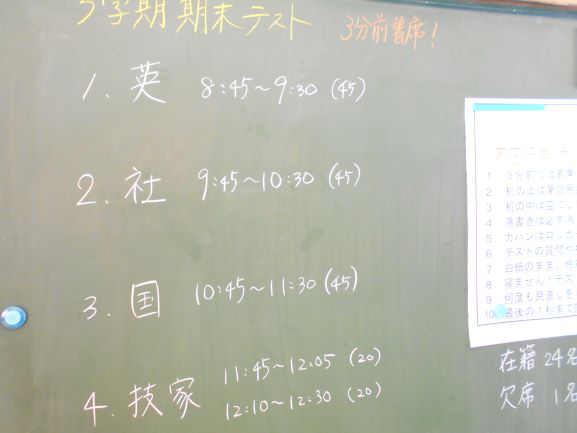 学期期末テスト
3分前着席!
1.英 8:45～9:30 (45)
2.社 9:45～10:30 (45)
3.国 10:45～11:30 (45)
4.技家 11:45～12:05 (20)
12:10～12:30 (20)
1 3分前には着席
2 机の上は筆記用
3 机の中は空にし
4 落書きは必ず消
5 カバンはロッカ
6 テストの質問や
7 白紙のまま、終
8 寝ません!テス
9 何度も見直しを
10 最後の1秒まで
在籍 24名
欠席 1名